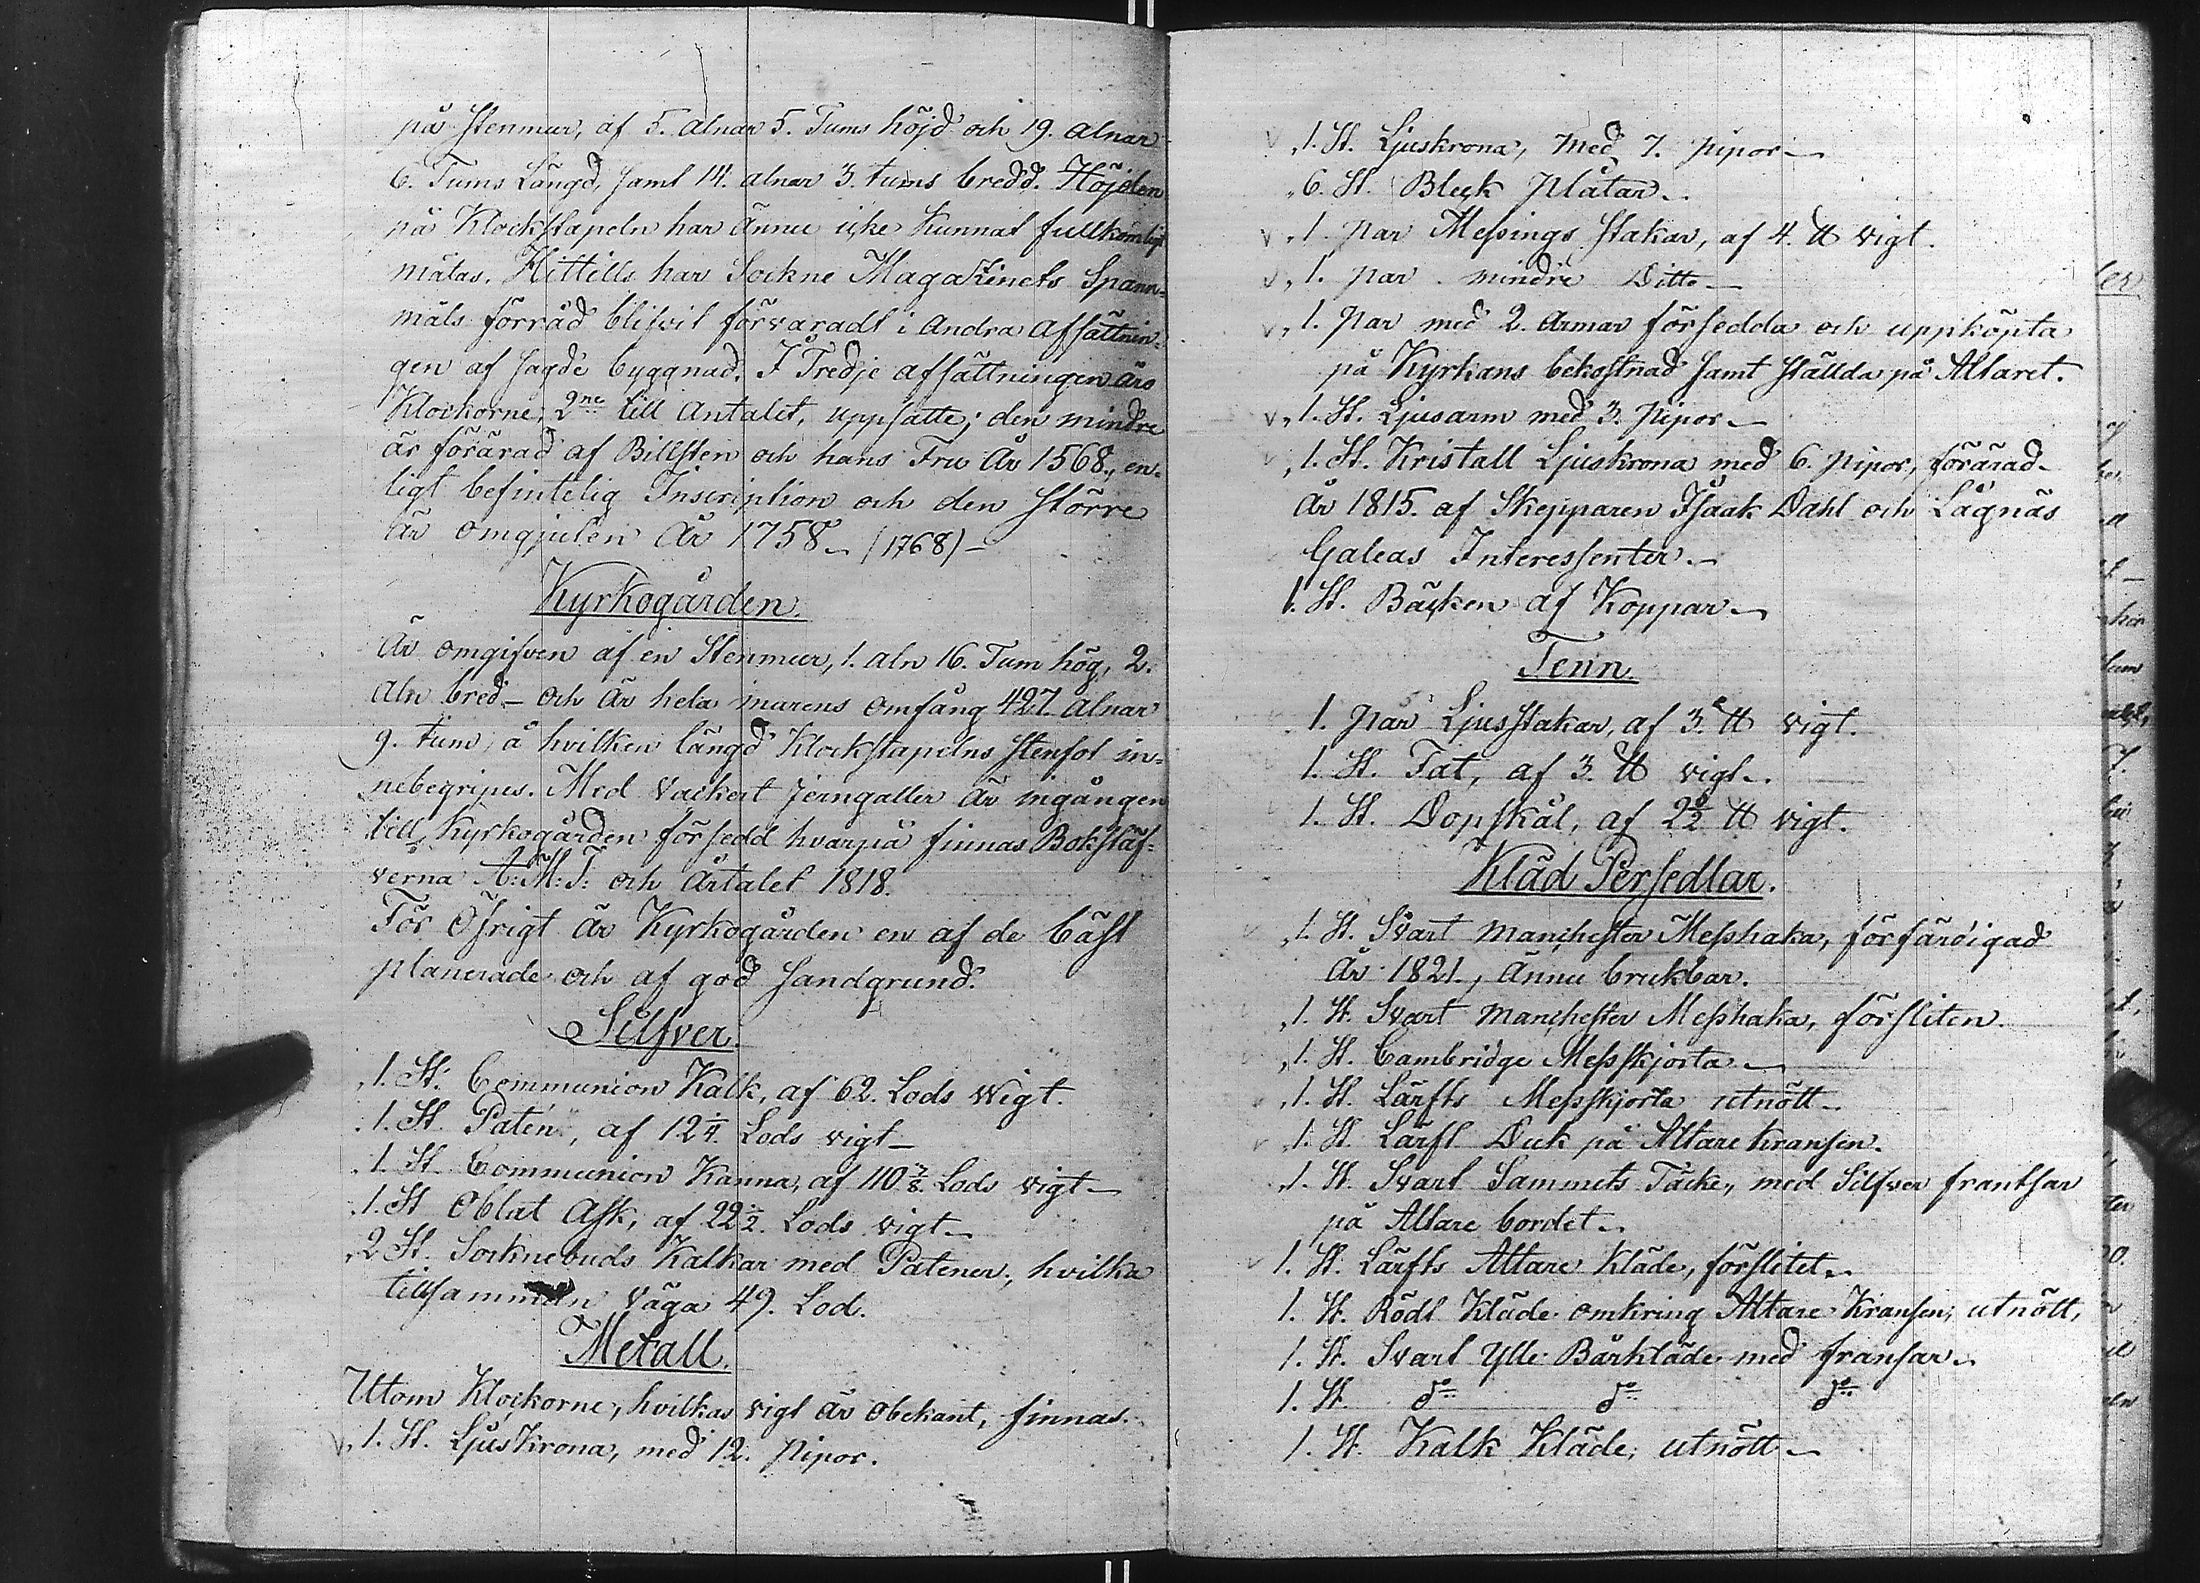 på Stenmur, af 5. alnar 5. Tums höjd och 19. alnar
6. Tums Längd, samt 14. alnar 3. tums bredd. Höjden
på Klockstapeln har ännu icke Kunnat fullkomligt
mätas. Hittills har Sockne Magazinets Spann-
måls förråd blifvit förvaradt i Andra afsättnin-
gen af sagde byggnad. I Tredje afsättningen äro
Klockorne, 2ne till Antalet, uppsatte; den mindre
är förärad af Billsten och hans Fru År 1568., en-
ligt befintelig Inscription och den större
är omgjuten År 1758. (1768)-
Kyrkogården.
Är omgifven af en Stenmur, 1. aln 16. Tum hög, 2.
Aln bred- och är hela murens omfång 427. alnar
9. tum, å hvilken längd Klockstapelns stenfot in-
nebegripes. Med vackert Jerngaller är ingången
till Kyrkogården försedd hvarpå finnas Bokstäf-
verna A:M:T: och Årtalet 1818.
För Öfrigt är Kyrkogården en af de bäst
planerade och af god sandgrund.
Silfver.
1. St. Communion Kalk, af 62. Lods Wigt.
1. St. Patén, af 12 1/4. Lods vigt-
1. St. Communion Kanna, af 110 7/8. Lods vigt-
1. St Oblat Ask, af 22 1/2. Lods vigt-
2 St. Socknebuds Kalkar med Patener, hvilka
tillsamman väga 49. Lod.
Metall.
Utom Klockorne, hvilkas vigt är obekant, finnas.
v. 1. St. LjusKrona, med 12. Pipor.
v, 1. St. Ljuskrona, med 7. pipor-
6. St. Bleck Plåtar-
v, 1. Par Messings stakar, af 4. ℔ vigt.
v, 1. par mindre Ditto-
v, 1. Par med 2. Armar försedda och uppköpta
på Kyrkans bekostnad samt ställda på Altaret.
v, 1. St. Ljusarm med 3. Pipor-
1. St. Kristall Ljuskrona med 6. Pipor, förärad-
År 1815. af Skepparen Isaak Dahl och Lågnäs
Galeas Interessenter.-
1. St. Bäcken af Koppar-
Tenn.
1. Par Ljusstakar, af 3. ℔ vigt.
1. St. Fat, af 3. ℔ vigt.
1. St. Dopskål, af 2 1/2 ℔ vigt.
Kläd Persedlar.
1. St. Svart Manchester Messhaka, förfärdigad
År 1821., Ännu brukbar.
1. St. Svart Manchester Messhaka, försliten.
1. St. Cambridge Messkjorta-
1. St. Lärfts Messkjorta utnött-
1. St. Lärft Duk på Altare kransen.
1. St. Svart Sammets Täcke, med Silfver frantsar
på Altare bordet.
v 1. St. Lärfts Altare Kläde, förslitet.
1. St. Rödt Kläde omkring Altare Kransen, utnött,
1. St. Svart Ylle Bårkläde med fransar.
1. St. do do do
1. St. Kalk Kläde, utnött-